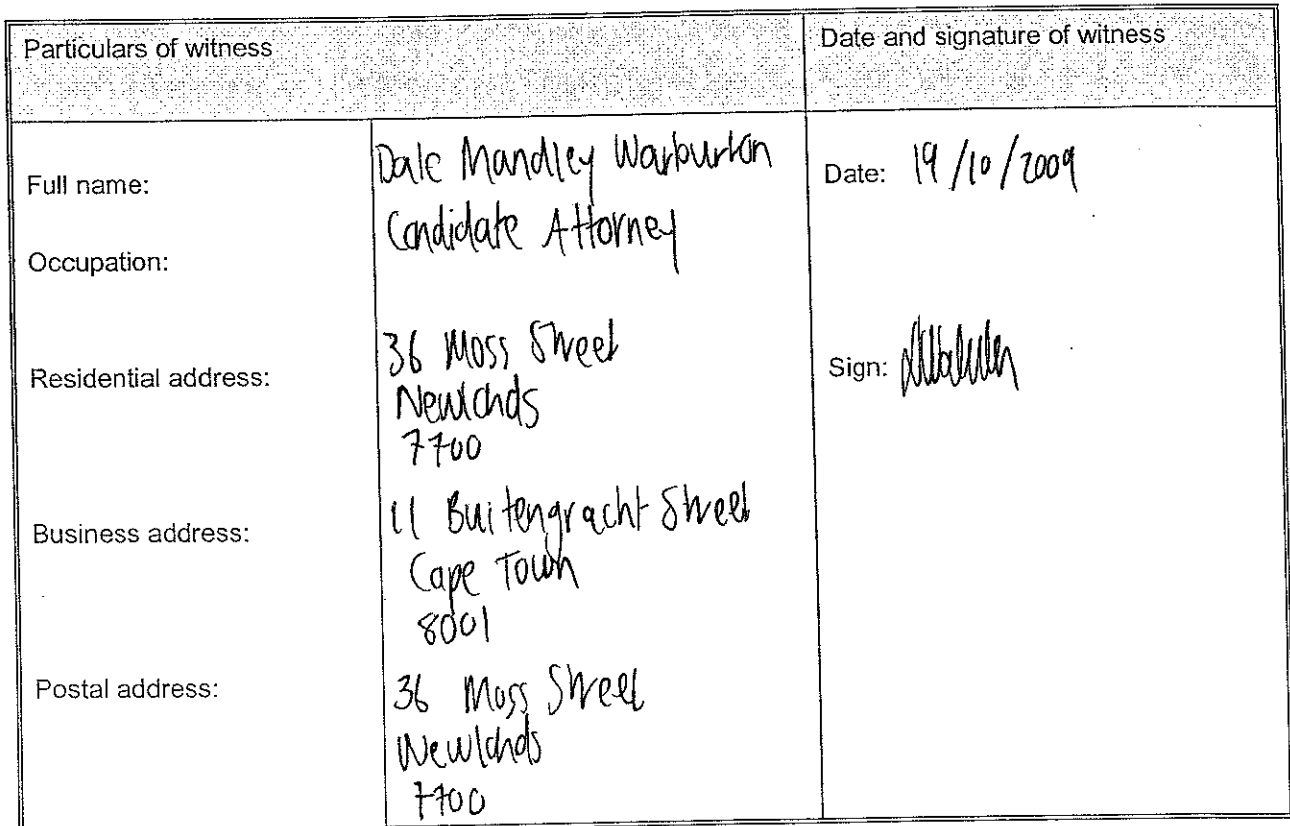 Particulars of witness Date and signature of witness
Full name: Dale Mandley Warburton Date: 19/10/2009
Occupation: Candidate Attorney
Residential address: 36 Moss Street Sign:
Newlands
7700
Business address: 11 Buitengracht Street
Cape Town
8001
Postal address: 36 Moss Street
Newlands
7700